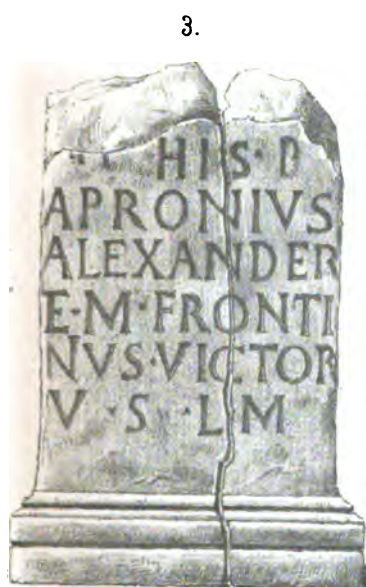 3.
HIS·P
APRONIVS
ALEXANDER
E·M·FRONTI
NVS·VICTOR
V·S·L M